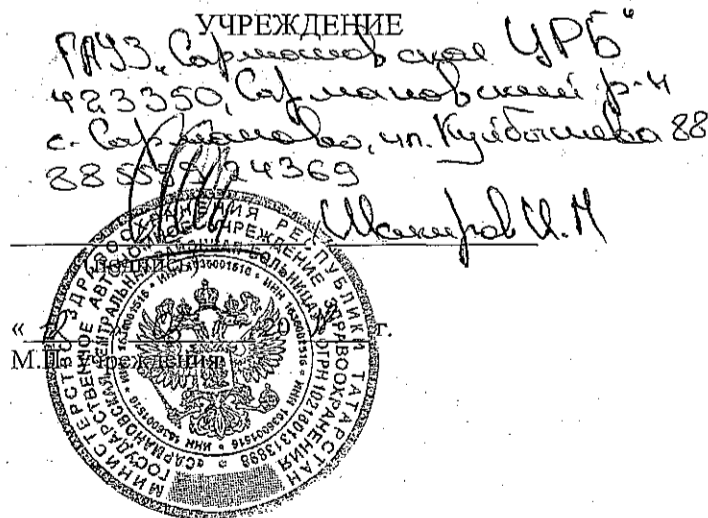 УЧРЕЖДЕНИЕ
ГАУЗ „Сармановская ЦРБ"
423350, Сармановский р-н
с. Сарманово, ул. Куйбышева 88
88555924369
Шакиров И.М
(подпись)
« » 20 г.
М.П. учреждения
МИНИСТЕРСТВО ЗДРАВООХРАНЕНИЯ РЕСПУБЛИКИ ТАТАРСТАН
ГОСУДАРСТВЕННОЕ АВТОНОМНОЕ УЧРЕЖДЕНИЕ ЗДРАВООХРАНЕНИЯ
«САРМАНОВСКАЯ ЦЕНТРАЛЬНАЯ РАЙОННАЯ БОЛЬНИЦА» ОГРН 1021601313898
ИНН 1636001516 * ИНН 1636001516 * ИНН 1636001516